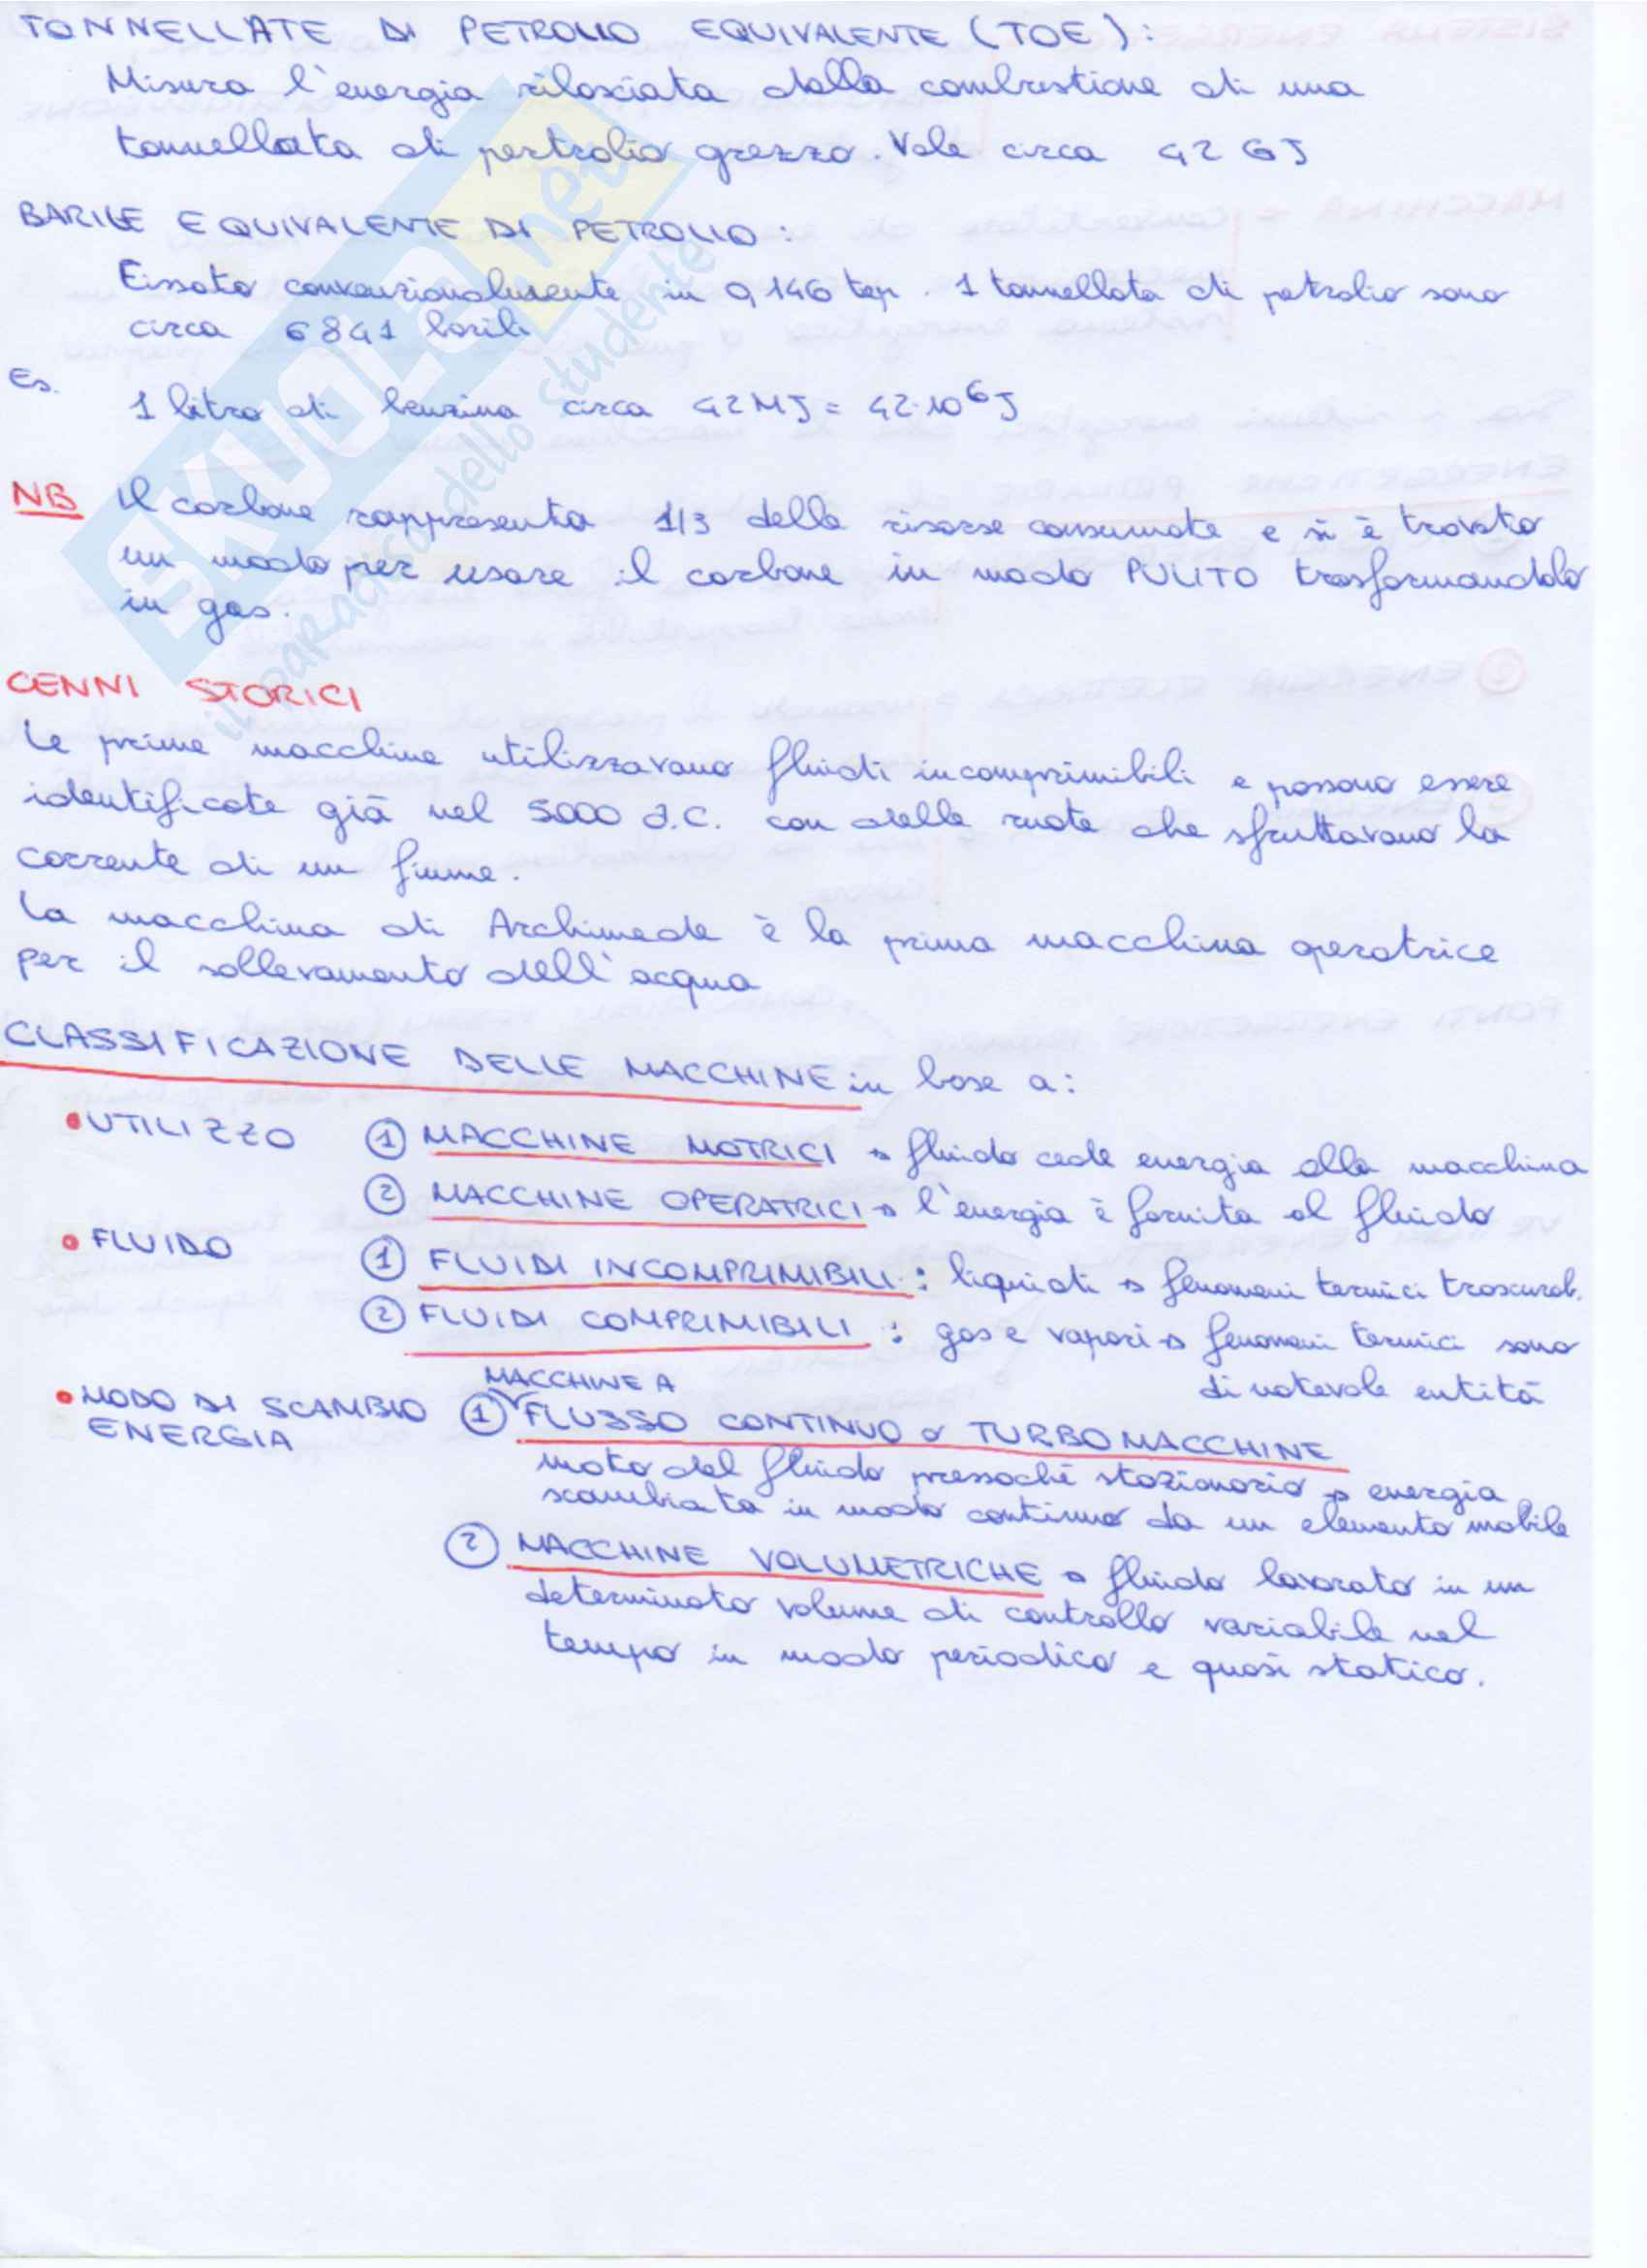 TONNELLATE DI PETROLIO EQUIVALENTE (TOE):
Misura l'energia rilasciata dalla combustione di una
tonnellata di pertrolio grezzo. Vale circa 42 GJ
BARILE EQUIVALENTE DI PETROLIO:
Fissato convenzionalmente in 0,146 tep. 1 tonnellata di petrolio sono
circa 6841 barili
Es.
1 litro di benzina circa 42MJ = 42·10⁶J
NB Il carbone rappresenta 1/3 delle risorse consumate e si è trovato
un modo per usare il carbone in modo PULITO trasformandolo
in gas.
CENNI STORICI
Le prime macchine utilizzavano fluidi incomprimibili e possono essere
identificate già nel 5000 a.C. con delle ruote che sfruttavano la
corrente di un fiume.
La macchina di Archimede è la prima macchina operatrice
per il sollevamento dell'acqua
CLASSIFICAZIONE DELLE MACCHINE in base a:
• UTILIZZO ① MACCHINE MOTRICI → fluido cede energia alla macchina
② MACCHINE OPERATRICI → l'energia è fornita al fluido
• FLUIDO ① FLUIDI INCOMPRIMIBILI: liquidi → fenomeni termici trascurab.
② FLUIDI COMPRIMIBILI: gas e vapori → fenomeni termici sono
di notevole entità
• MODO DI SCAMBIO ENERGIA ① MACCHINE A FLUSSO CONTINUO o TURBOMACCHINE
moto del fluido pressoché stazionario → energia
scambiata in modo continuo da un elemento mobile
② MACCHINE VOLUMETRICHE → fluido lavorato in un
determinato volume di controllo variabile nel
tempo in modo periodico e quasi statico.
SKUOLA.net
il paradiso dello studente